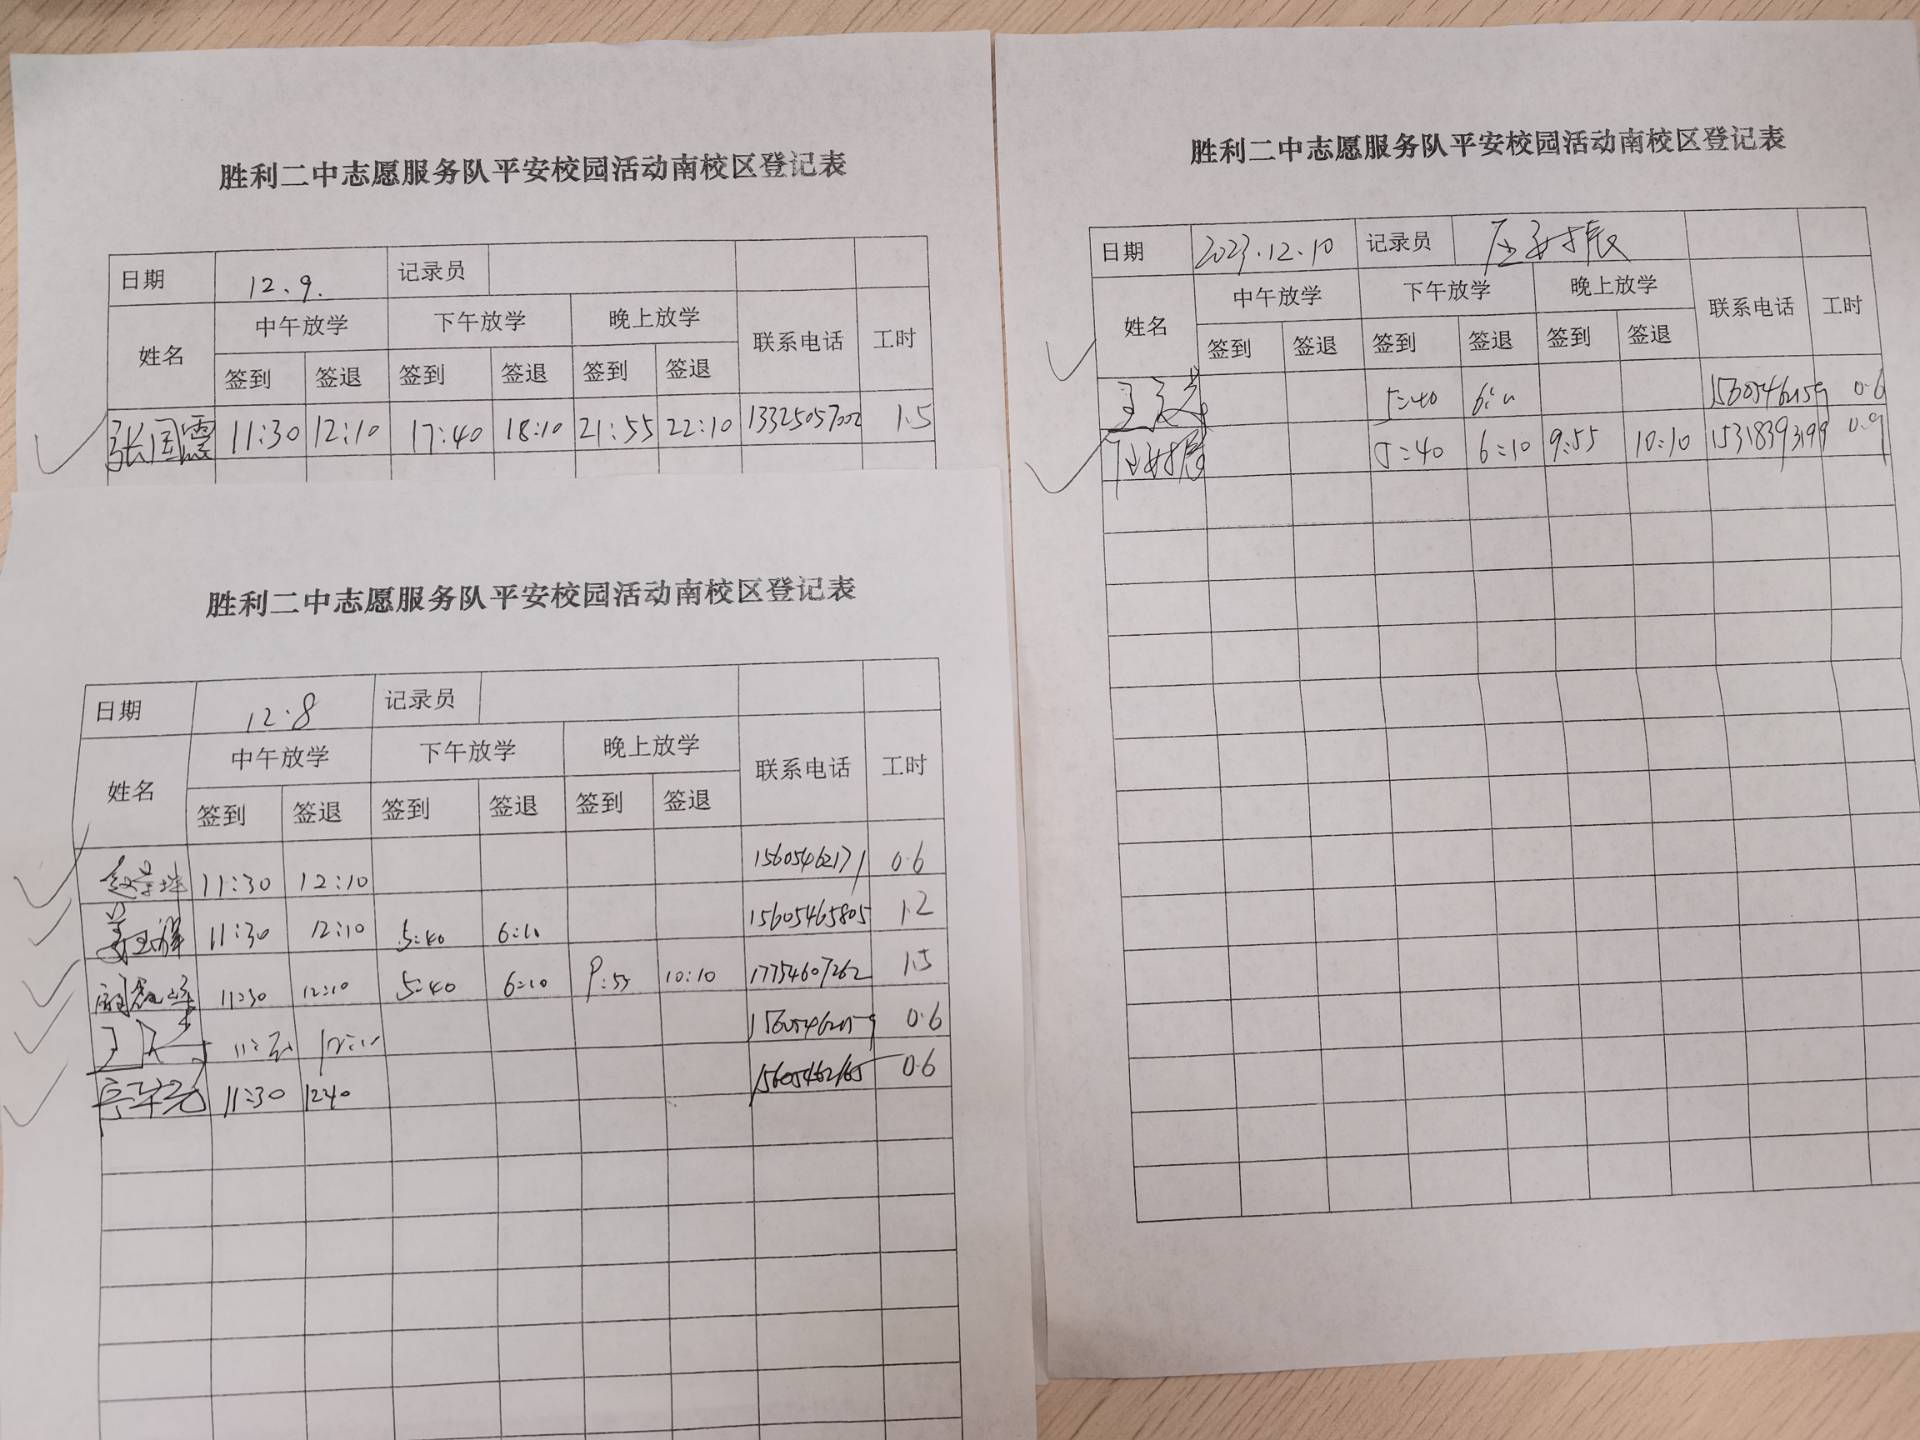 胜利二中志愿服务队平安校园活动南校区登记表
日期 12.9. 记录员
姓名 中午放学 下午放学 晚上放学 联系电话 工时
签到 签退 签到 签退 签到 签退
张国震 11:30 12:10 17:40 18:10 21:55 22:10 13325057002 1.5
胜利二中志愿服务队平安校园活动南校区登记表
日期 12.8 记录员
姓名 中午放学 下午放学 晚上放学 联系电话 工时
签到 签退 签到 签退 签到 签退
11:30 12:10 15605462171 0.6
11:30 12:10 5:40 6:10 15605465805 1.2
11:30 12:10 5:40 6:10 9:55 10:10 17754607262 1.5
0.6
11:30 12:40 15605462165 0.6
胜利二中志愿服务队平安校园活动南校区登记表
日期 2023.12.10 记录员
姓名 中午放学 下午放学 晚上放学 联系电话 工时
签到 签退 签到 签退 签到 签退
5:40 0.6
5:40 6:10 9:55 10:10 15318393199 0.9